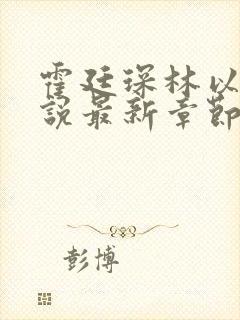 霍廷琛林以
說最新章節
彭博